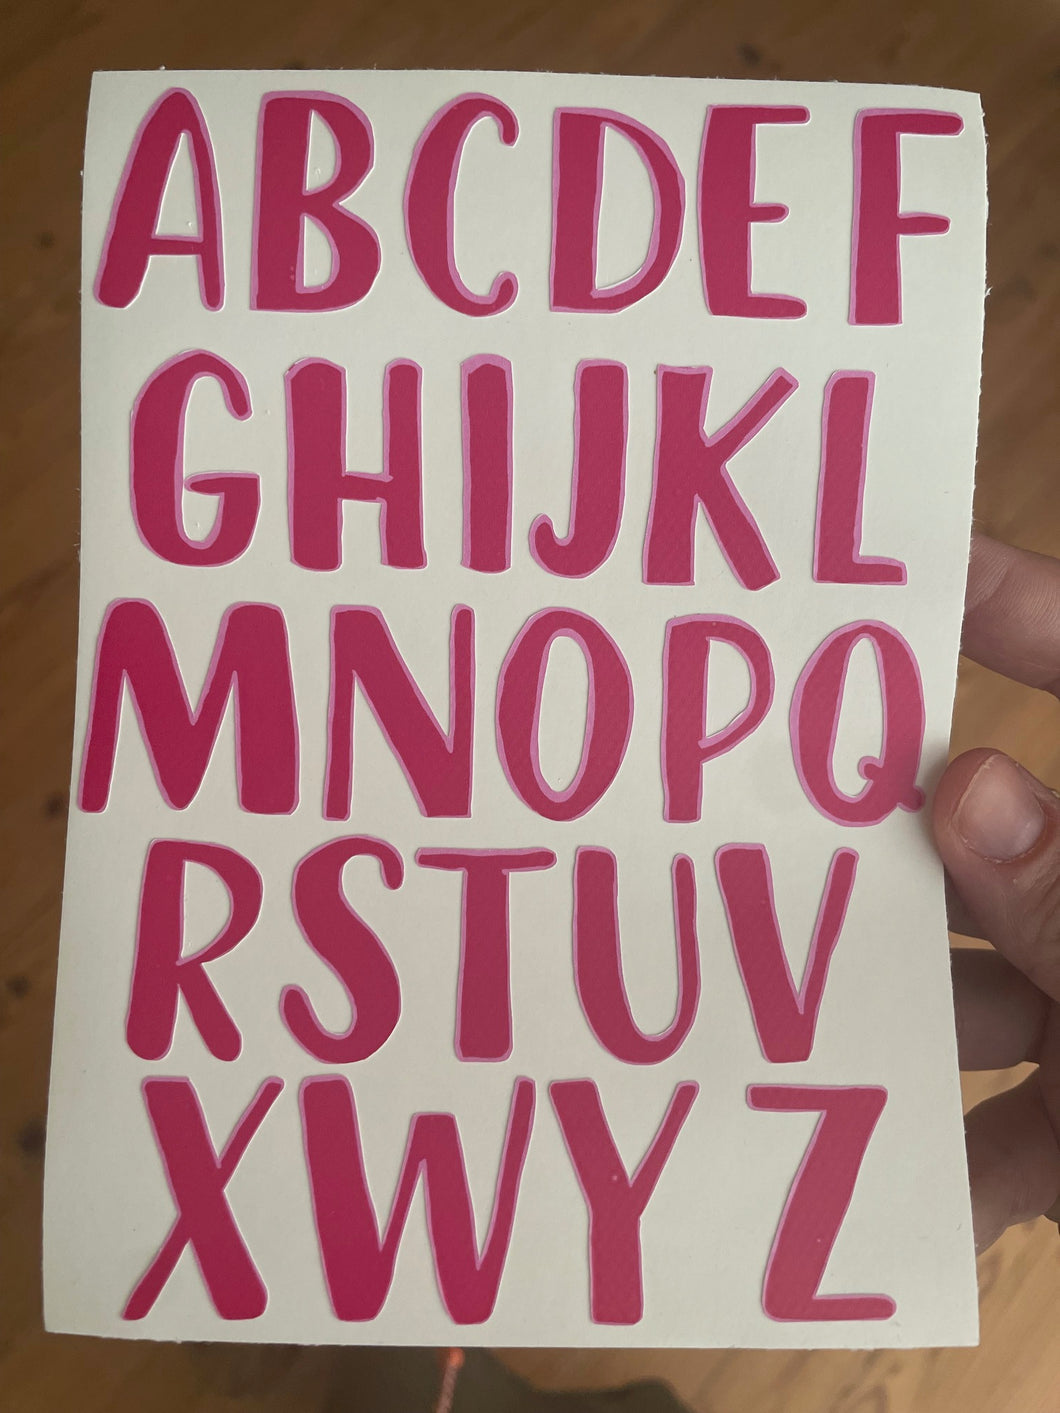 ABCDEF
GHIJKL
MNOPQ
RSTUV
XWYZ